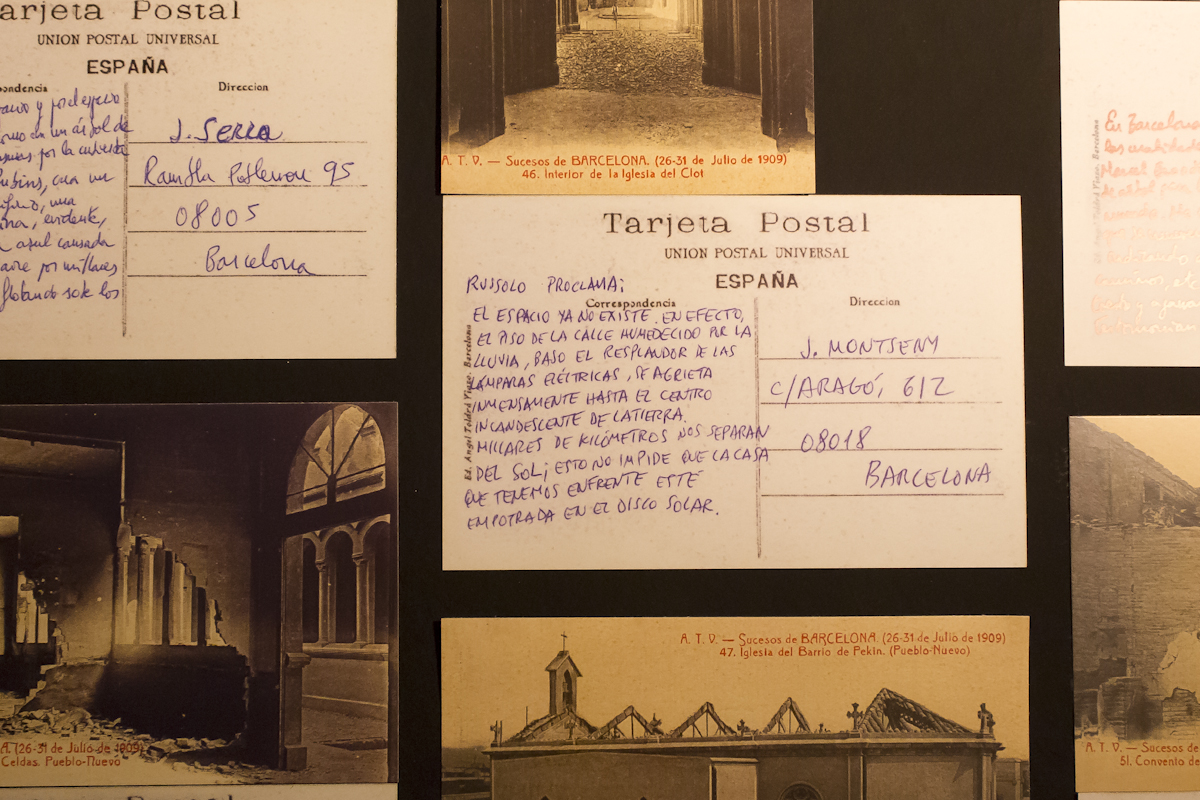 Tarjeta Postal
UNION POSTAL UNIVERSAL
ESPAÑA
Direccion
y por el espacio
en un árbol de
por la cubierta
una
evidente,
azul causada
aire por millares
flotando sobre los
J. Serra
Rambla Poblenou 95
08005
Barcelona
A. T. V. — Sucesos de BARCELONA. (26-31 de Julio de 1909)
46. Interior de la Iglesia del Clot
Tarjeta Postal
UNION POSTAL UNIVERSAL
ESPAÑA
Correspondencia
Direccion
Ed. Angel Toldrá Viazo. Barcelona
RUSSOLO PROCLAMA:
EL ESPACIO YA NO EXISTE. EN EFECTO,
EL PISO DE LA CALLE HUMEDECIDO POR LA
LLUVIA, BAJO EL RESPLANDOR DE LAS
LÁMPARAS ELÉCTRICAS, SE AGRIETA
INMENSAMENTE HASTA EL CENTRO
INCANDESCENTE DE LA TIERRA.
MILLARES DE KILÓMETROS NOS SEPARAN
DEL SOL; ESTO NO IMPIDE QUE LA CASA
QUE TENEMOS ENFRENTE ESTÉ
EMPOTRADA EN EL DISCO SOLAR.
J. MONTSENY
C/ARAGÓ, 612
08018
BARCELONA
En Barcelona
A. (26-31 de Julio de 1909)
Celdas. Pueblo-Nuevo
A. T. V. — Sucesos de BARCELONA. (26-31 de Julio de 1909)
47. Iglesia del Barrio de Pekin. (Pueblo-Nuevo)
A. T. V. — Sucesos de
51. Convento de